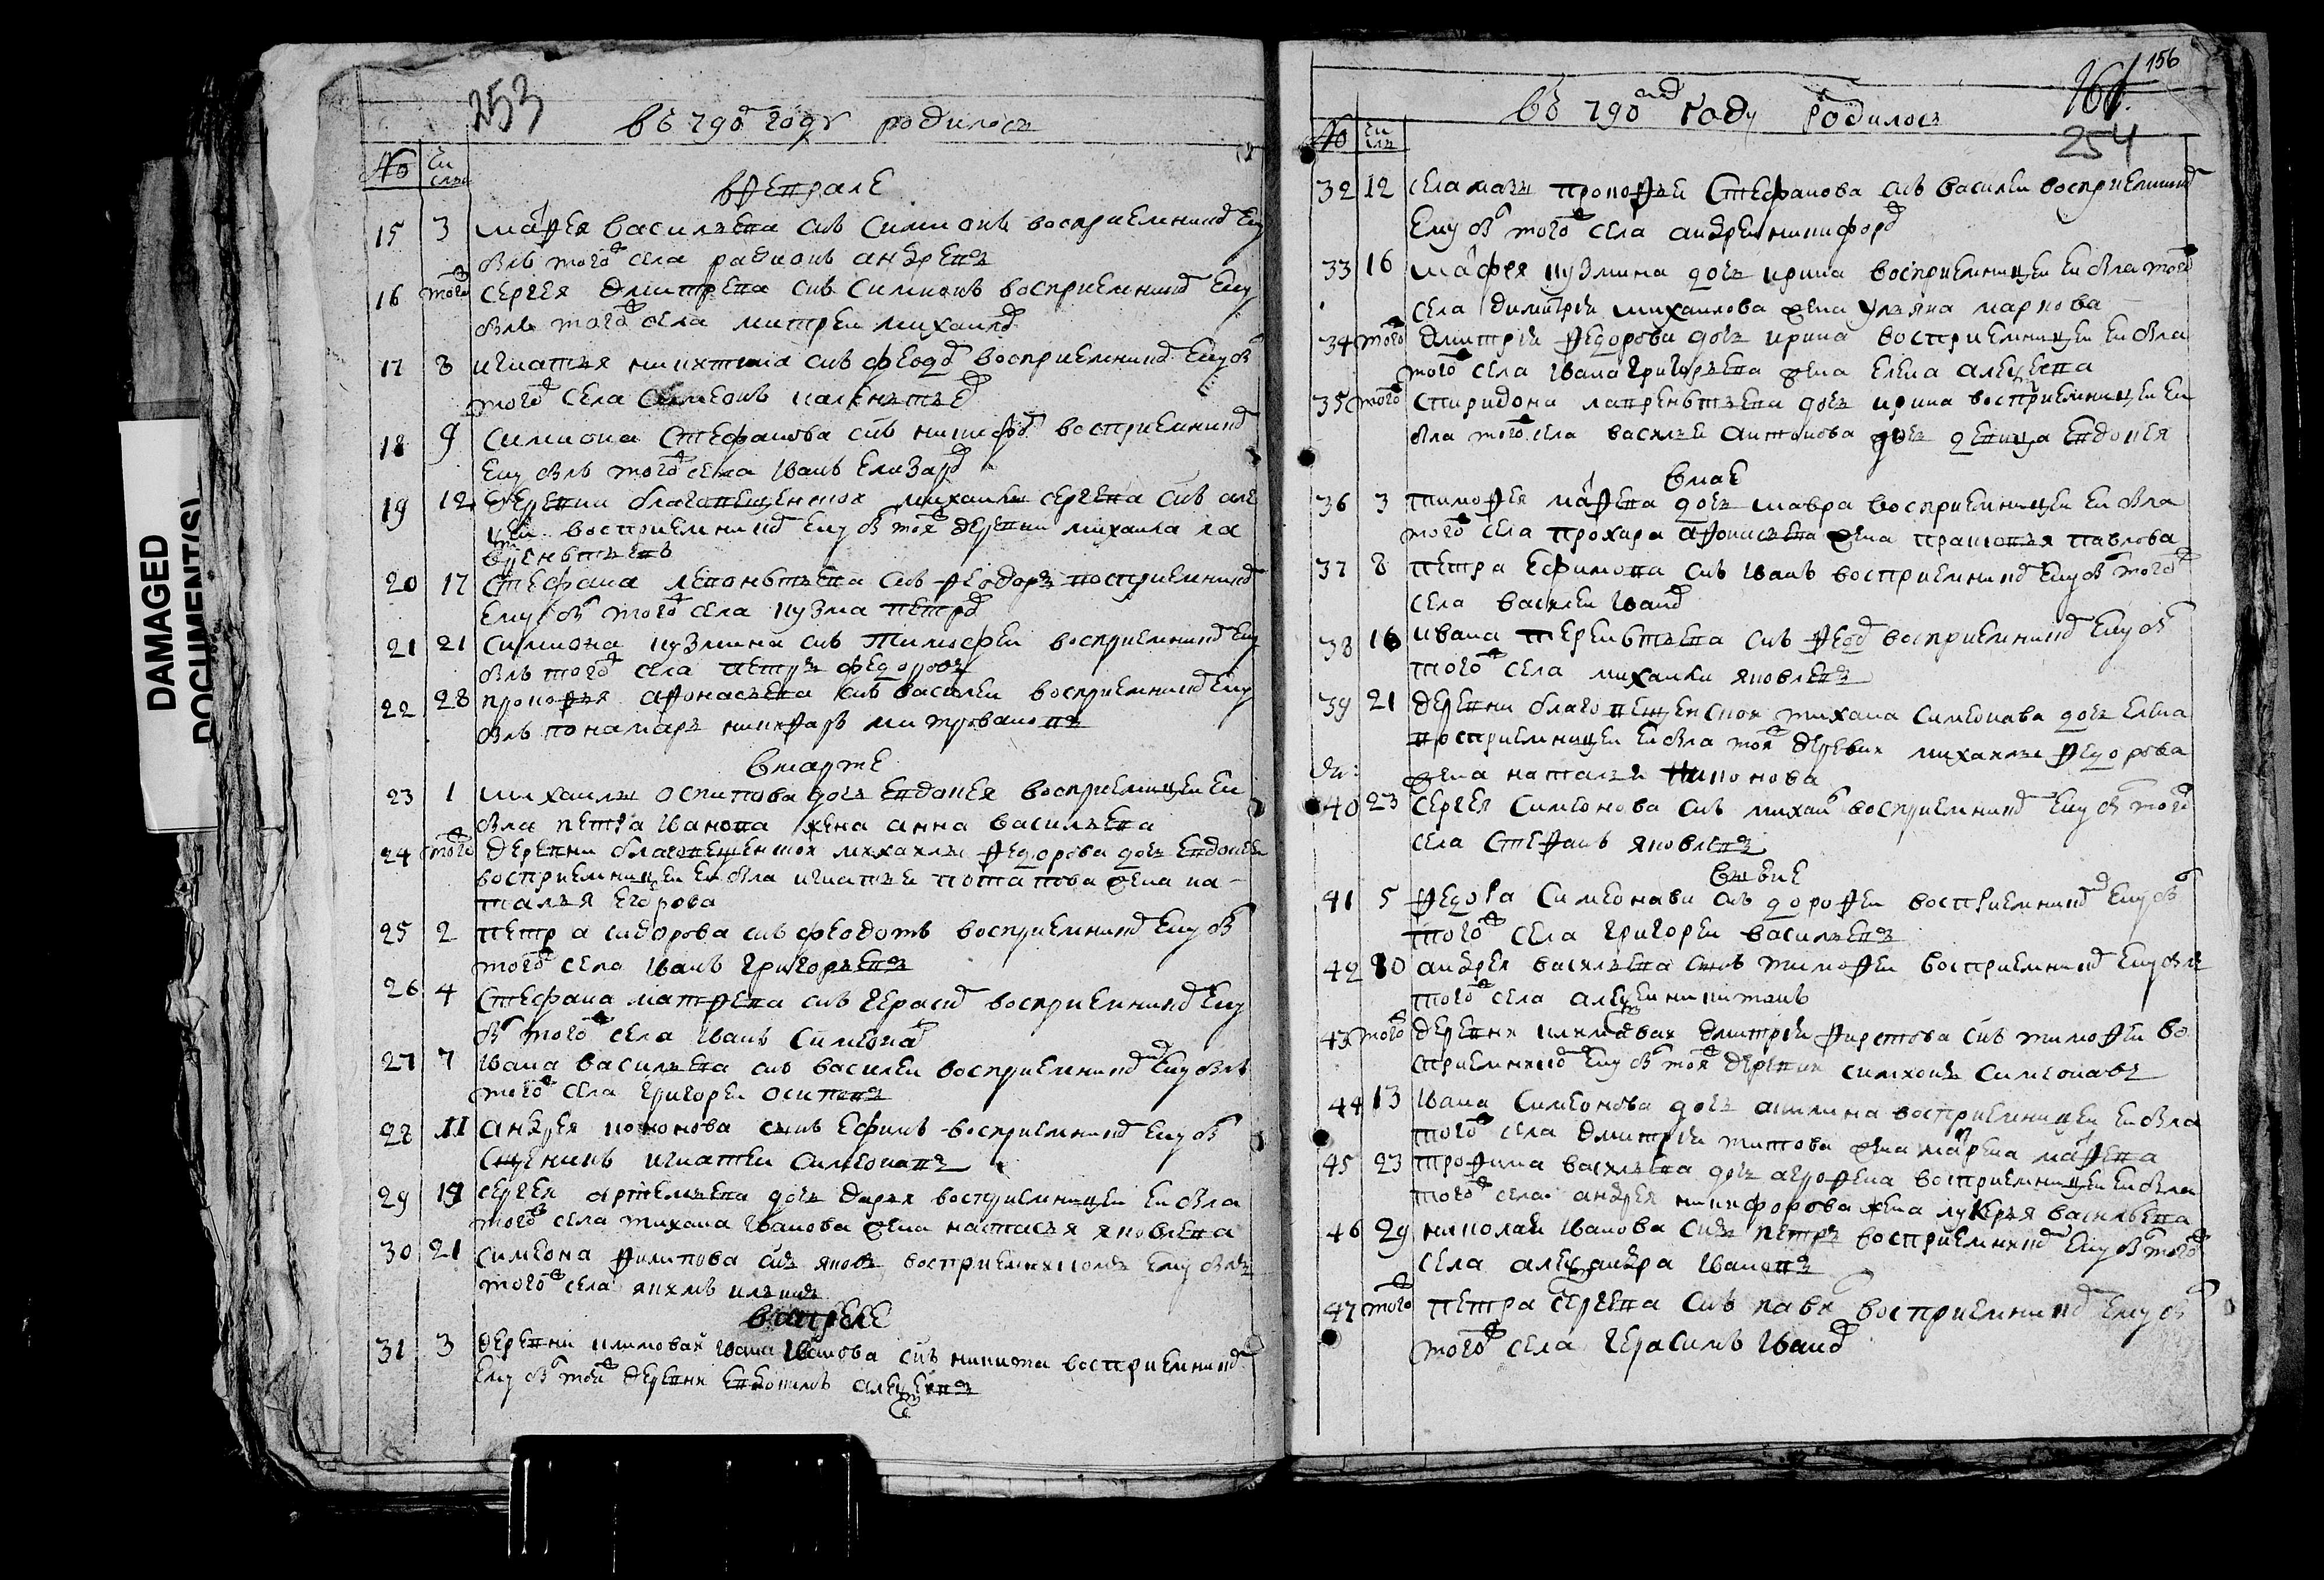 DAMAGED
DOCUMENT(S)
253
въ 790 году родилось
№ числа
в феврале
15 3 Матфея Васильева снъ Симионъ восприемникъ ему
былъ того села Радионъ Андреевъ
16 того Сергея Дмитрева снъ Симионъ восприемникъ ему
былъ того села Митреи Михаил
17 8 Игнатья снъ Феод восприемникъ ему бы
того села Симеонъ
18 9 Симиона Стефанова снъ Никифор восприемникъ
ему былъ того села Иванъ Елизар
19 12 деревни Благовещенской Михаилы Сергева снъ Але
ксеи восприемникъ ему бы тоя деревни Михаила Ла
врентьевъ
20 17 Стефана Леонтьева снъ Феодоръ восприемникъ
ему бы того села Кузма Петр
21 21 Симиона Кузмина снъ Тимофеи восприемникъ ему
былъ того села Петръ Федоровъ
22 28 Прокофья Афонасьева снъ Василеи восприемникъ ему
былъ понамаръ Никифаръ Митровановъ
в марте
23 1 Михаилы Оситова дочь Евдокея восприемницеи еи
была Петра Иванова жена Анна Васильева
24 того деревни Благовещенской Михаилы Федорова дочь Евдокея
восприемницеи еи была Игнатьи Потапова жена На-
талья Егорова
25 2 Петра Сидорова снъ Феодотъ восприемникъ ему бы
того села Иванъ Григорьевъ
26 4 Стефана Матфева снъ Герасим восприемникъ ему
бы того села Иванъ Симиона
27 7 Ивана Васильева снъ Василеи восприемникъ ему былъ
того села Григореи Осиповъ
28 11 Андрея снъ Ефимъ восприемникъ ему бы
сщеникъ Игнатеи Симеоновъ
29 19 Сергея Артемьева дочь Дарья восприемницеи еи была
того села Тихона Иванова жена Настасья Яковлева
30 21 Симеона Филипова снъ Яковъ восприемникомъ ему былъ
того села Якимъ Ильинъ
в апреле
31 3 деревни Ивана Иванова снъ Никита восприемникъ
ему бы тои деревни Евдокимъ Алексеевъ
156
161
254
въ 790 году родилось
№ числа
32 12 села Прокофьи Стефанова снъ Василеи восприемникъ
ему бы того села Андреи Никифор
33 16 Матфея Кузмина дочь Ирина восприемницеи еи была того
села Димитреи Михаилова жена Ульяна Маркова
34 того Дмитреи Федорова дочь Ирина восприемницеи еи была
того села Ивана Григорьева жена Елена Алексеева
35 того Спиридона Лаврентьева дочь Ирина восприемницеи еи
была того села Васильи Антонова дочь девица Евдокея
в мае
36 3 Тимофея Матфева дочь Мавра восприемницеи еи была
того села Прохора Афонасьева жена Прасковья Павлова
37 8 Петра Ефимова снъ Иванъ восприемникъ ему бы того
села Василеи Иван
38 16 Ивана Терентьева снъ Феод восприемникъ ему бы
того села Михаилы Яковлевъ
39 21 деревни Благовещенской Тихана Симеонова дочь Елена
восприемницеи еи была тоя деревни Михаилы Федорова
жена Наталья
40 23 Сергея Симеонова снъ Михаи восприемникъ ему бы того
села Стефанъ Яковлевъ
41 5 Федора Симеонава снъ Дорофеи восприемникъ ему бы
того села Григореи Васильевъ
42 10 Андрея Васильева снъ Тимофеи восприемникъ ему былъ
того села Алексеи Никитинъ
43 того деревни Дмитреи снъ Тимофеи во
сприемникъ ему бы тоя деревни Симионъ Симеоновъ
44 13 Ивана Симеонова дочь Акилина восприемницеи еи была
того села Дмитреи Титова жена Марфа Матфева
45 23 Трофима Васильева дочь Агрофена восприемницеи еи была
того села Андрея Никифорова жена Лукерья Васильева
46 29 Николаи Иванова снъ Петръ восприемникъ ему бы того
села Александра Ивановъ
47 того Петра Сергева снъ Паве восприемникъ ему бы
того села Герасимъ Иван